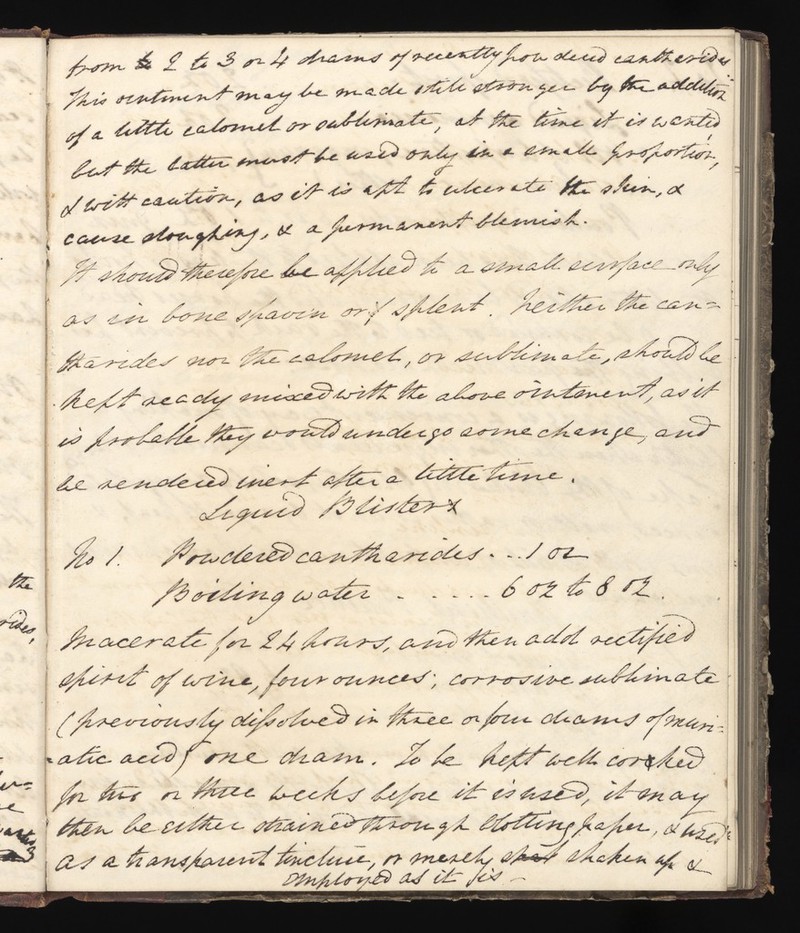 from 2 to 3 or 4 drams of recently powdered cantharides
This ointment may be made still stronger by the addition
of a little calomel or sublimate, at the time it is wanted,
but the latter must be used only in a small proportion,
& with caution, as it is apt to ulcerate the skin, &
cause sloughing, & a permanent blemish.
It should therefore be applied to a small surface only
as in bone spavin or splent. Neither the can=
tharides nor the calomel, or sublimate, should be
kept ready mixed with the above ointment, as it
is probable they would undergo some change, and
be rendered inert after a little time.
Liquid Blister
No 1. Powdered cantharides . . . 1 oz
Boiling water . . . . . . 6 oz to 8 oz.
Macerate for 24 hours, and then add rectified
spirit of wine, four ounces; corrosive sublimate
(previously dissolved in three or four drams of muri=
=atic acid) one dram. To be kept well corked
for two or three weeks before it is used, it may
then be either strained through blotting paper, & used
as a transparent tincture, or merely shaken up &
employed as it is -
the
rides,